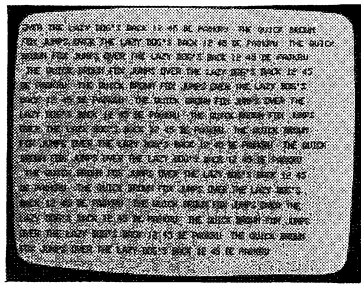 OVER THE LAZY DOG'S BACK 12 45 DE PA0KBU THE QUICK BROWN
FOX JUMPS OVER THE LAZY DOG'S BACK 12 45 DE PA0KBU THE QUICK
BROWN FOX JUMPS OVER THE LAZY DOG'S BACK 12 45 DE PA0KBU
THE QUICK BROWN FOX JUMPS OVER THE LAZY DOG'S BACK 12 45
DE PA0KBU THE QUICK BROWN FOX JUMPS OVER THE LAZY DOG'S
BACK 12 45 DE PA0KBU THE QUICK BROWN FOX JUMPS OVER THE
LAZY DOG'S BACK 12 45 DE PA0KBU THE QUICK BROWN FOX JUMPS
OVER THE LAZY DOG'S BACK 12 45 DE PA0KBU THE QUICK BROWN
FOX JUMPS OVER THE LAZY DOG'S BACK 12 45 DE PA0KBU THE QUICK
BROWN FOX JUMPS OVER THE LAZY DOG'S BACK 12 45 DE PA0KBU
THE QUICK BROWN FOX JUMPS OVER THE LAZY DOG'S BACK 12 45
DE PA0KBU THE QUICK BROWN FOX JUMPS OVER THE LAZY DOG'S
BACK 12 45 DE PA0KBU THE QUICK BROWN FOX JUMPS OVER THE
LAZY DOG'S BACK 12 45 DE PA0KBU THE QUICK BROWN FOX JUMPS
OVER THE LAZY DOG'S BACK 12 45 DE PA0KBU THE QUICK BROWN
FOX JUMPS OVER THE LAZY DOG'S BACK 12 45 DE PA0KBU